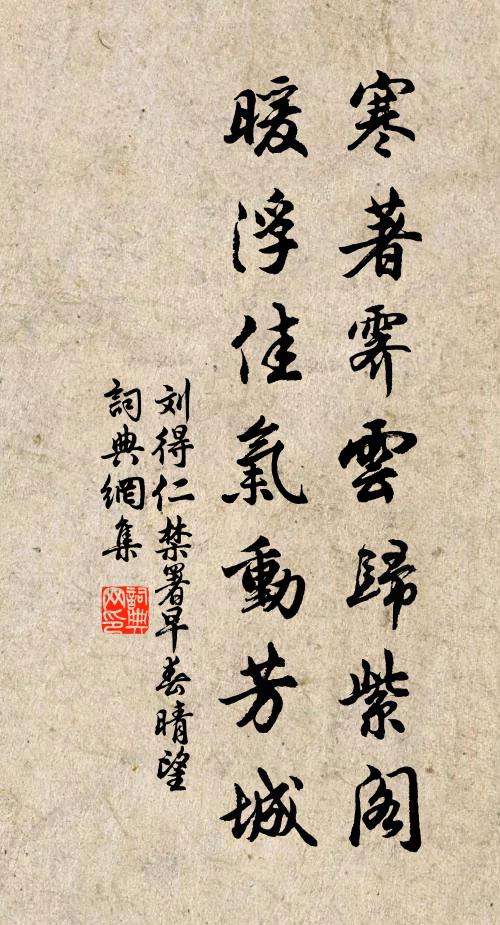 寒著霽雲歸紫閣
暖浮佳氣動芳城
刘得仁禁署早春晴望
詞典網集
詞典网印